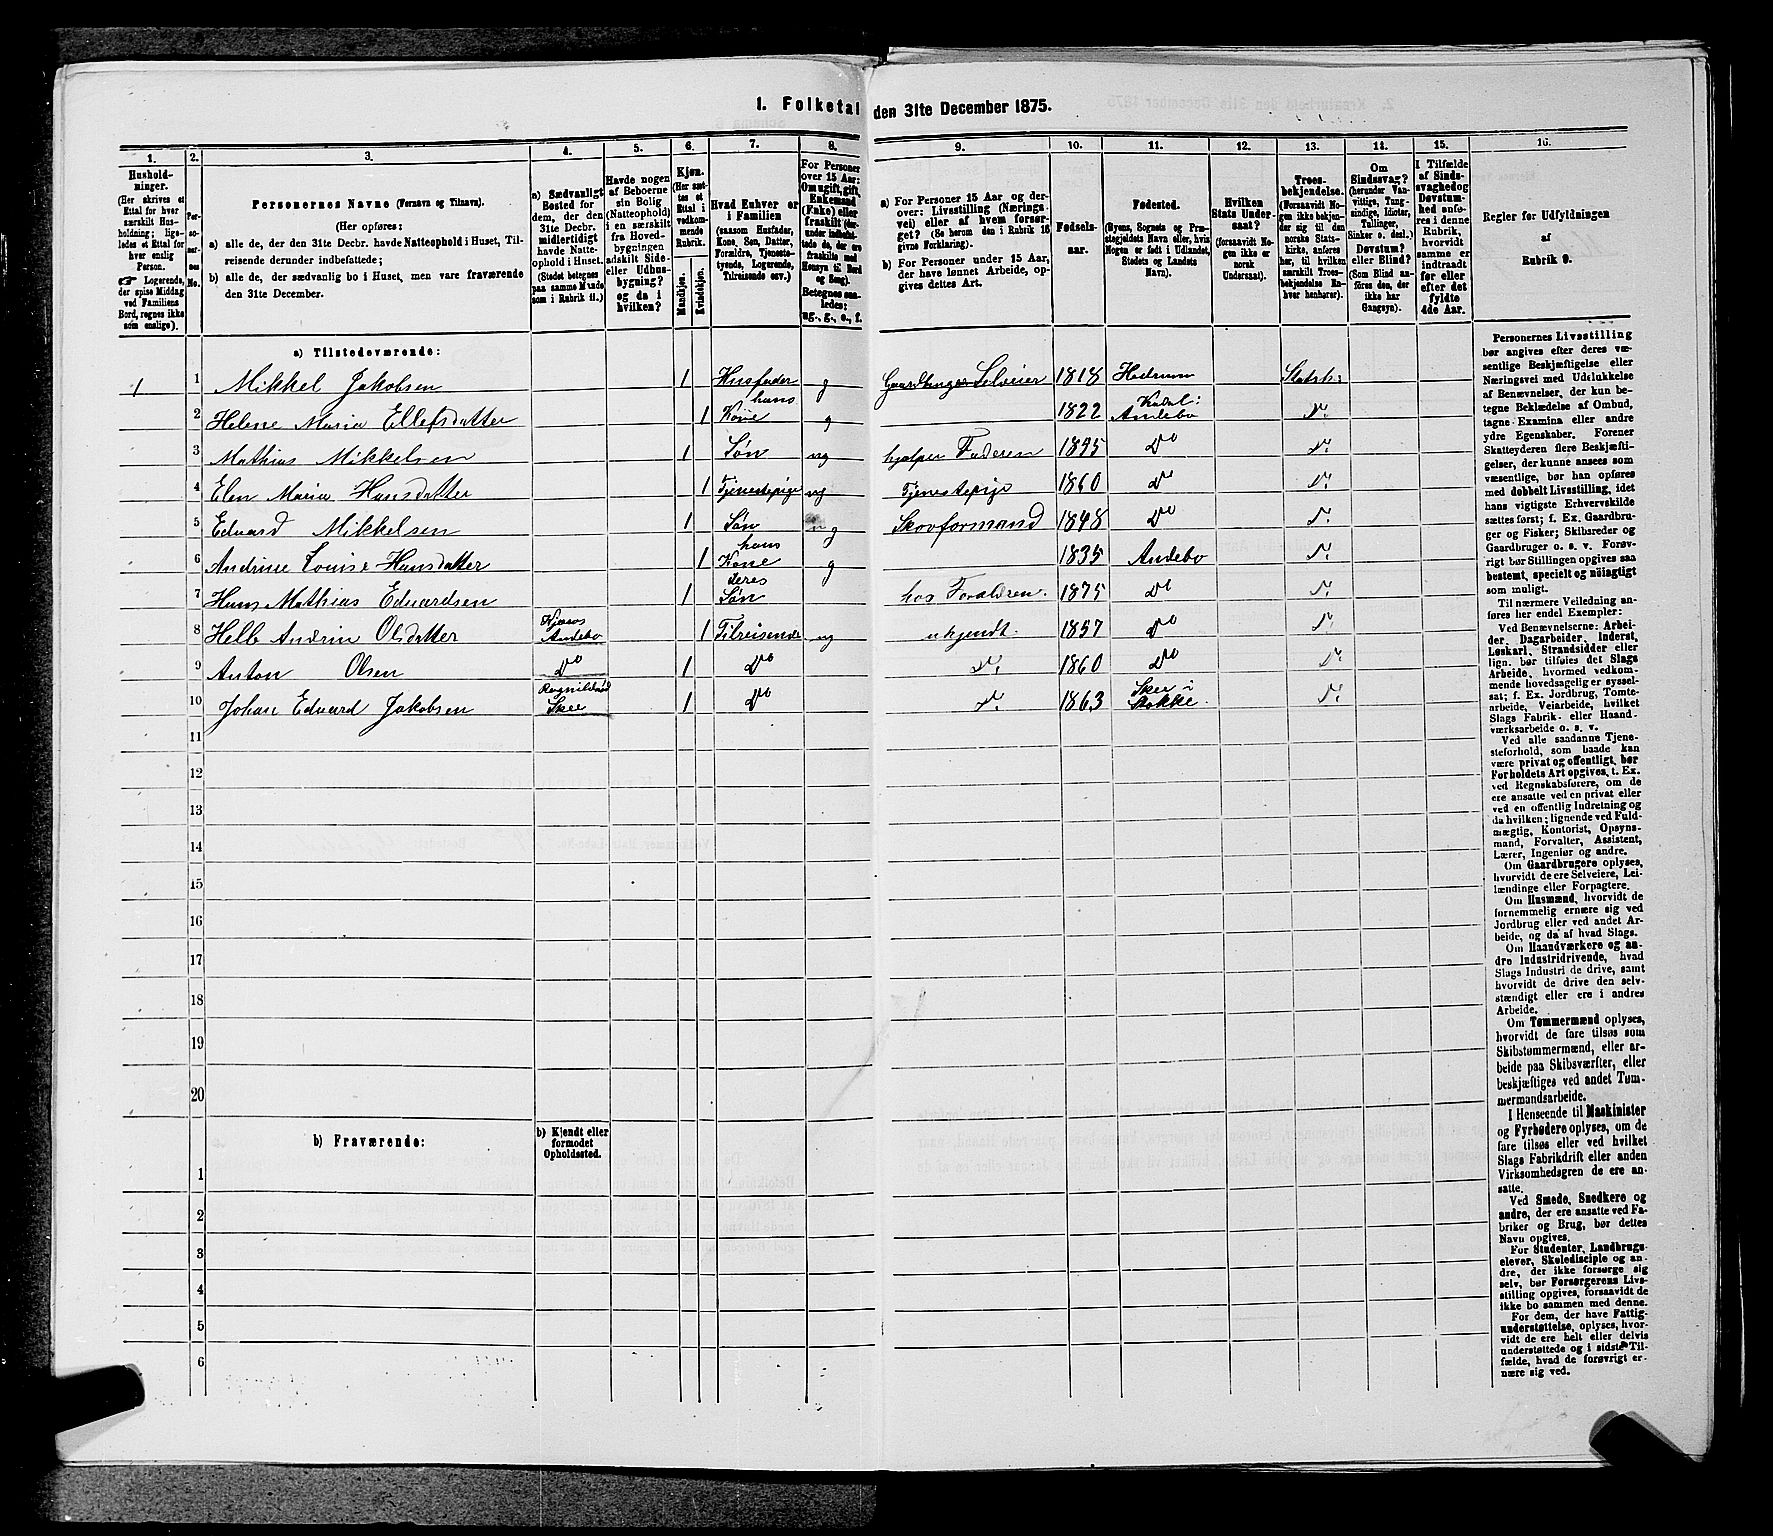 1. Folketal den 31te December 1875.
1. 2. 3. 4. 5. 6. 7. 8. 9. 10. 11. 12. 13. 14. 15. 16.
Hushold-
ninger.
(Her skrives et
Ettal for hver
særskilt Hus-
holdning; lige-
ledes et Ettal for
hver enslig
Person.
☞ Logerende,
der spise Middag
ved Familiens
Bord, regnes ikke
som enslige).
Per-
so-
ner-
nes
No.
Personernes Navne (Fornavn og Tilnavn).
(Her opføres:
a) alle de, der den 31te Decbr. havde Natteophold i Huset, Til-
reisende derunder indbefattede;
b) alle de, der sædvanlig bo i Huset, men vare fraværende
den 31te December.
a) Sædvanligt
Bosted for
dem, der den
31te Decbr.
midlertidigt
havde Natte-
ophold i Huset.
(Stedet betegnes
paa samme Maade
som i Rubrik 11.)
Havde nogen
af Beboerne
sin Bolig
(Natteophold)
i en særskilt
fra Hoved-
bygningen
adskilt Side-
eller Udhus-
bygning?
og da i
hvilken?
Kjøn.
(Her sæt-
tes et
Ettal i
vedkom-
mende
Rubrik.
Mandkjøn.
Kvindekjøn.
Hvad Enhver er
i Familien
(saasom Husfader,
Kone, Søn, Datter,
Forældre, Tjeneste-
tyende, Logerende,
Tilreisende osv.)
For Personer
over 15 Aar:
Om ugift, gift,
Enkemand
(Enke) eller
fraskilt (der-
under indbefat-
tede de, der ere
fraskilte med
Hensyn til Bord
og Seng).
Betegnes saa-
ledes:
ug., g., e., f.
a) For Personer 15 Aar og der-
over: Livsstilling (Nærings-
vei) eller af hvem forsør-
get? (Se herom den i Rubrik 16
givne Forklaring).
b) For Personer under 15 Aar,
der have lønnet Arbeide, op-
gives dettes Art.
Fødsels-
aar.
Fødested.
(Byens, Sognets og Præ-
stegjeldets Navn eller, hvis
Nogen er født i Udlandet,
Stedets og Landets
Navn).
Hvilken
Stats Under-
saat?
(forsaavidt No-
gen ikke er
norsk
Undersaat).
Troes-
bekjendelse.
(Forsaavidt No-
gen ikke bekjen-
der sig til den
norske Stats-
kirke, anføres
her, til hvilken
særskilt Troes-
bekjendelse En-
hver henhører).
Om
Sindssvag?
(herunder Van-
vittige, Tung-
sindige, Idioter,
Tullinger,
Sinker o. desl.)
Døvstum?
eller Blind?
(Som Blind an-
føres den, der
ikke har
Gangsyn).
I Tilfælde
af Sinds-
svaghed og
Døvstum-
hed anfø-
res i denne
Rubrik,
hvorvidt
samme er
indtraadt
før eller
efter det
fyldte
4de Aar.
Regler for Udfyldningen
af
Rubrik 9.
a) Tilstedeværende:
1 1 Mikkel Jakobsen 1 Husfader g Gaardbruger Selveier 1818 Hedrum Statsk:
2 Helene Maria Ellefsdatter 1 hans Kone g 1822 Kodal: Andebo Do
3 Mathias Mikkelsen 1 Søn ug hjælper Faderen 1845 Do Do
4 Elen Maria Hansdatter 1 Tjenestepige ug Tjenestepige 1860 Do Do
5 Edvard Mikkelsen 1 Søn g Skovformand 1848 Do Do
6 Andrine Louise Hansdatter 1 hans Kone g 1835 Andebo Do
7 Hans Mathias Edvardsen 1 deres Søn hos Forældren. 1875 Do Do
8 Andrin Olsdatter Andebo 1 Tilreisende ug ukjendt. 1857 Do Do
9 Anton Olsen Do 1 Do Do 1860 Do Do
10 Johan Edvard Jakobsen Skee 1 Do Do 1863 Skee i Stokke. Do
11
12
13
14
15
16
17
18
19
20
b) Fraværende:
b) Kjendt eller
formodet
Opholdssted.
1
2
3
4
5
6
Personernes Livsstilling
bør angives efter deres væ-
sentlige Beskjæftigelse eller
Næringsvei med Udelukkelse
af Benævnelser, der kun be-
tegne Beklædelse af Ombud,
tagne Examina eller andre
ydre Egenskaber. Forener
Skatteyderen flere Beskjæfti-
gelser, der kunne ansees som
væsentlige, bør han opføres
med dobbelt Livsstilling, idet
hans vigtigste Erhvervskilde
sættes først; f. Ex. Gaardbru-
ger og Fisker; Skibsreder og
Gaardbruger o. s. v. Forøv-
rigt bør Stillingen opgives saa
bestemt, specielt og nøiagtigt
som muligt.
Til nærmere Veiledning an-
føres her endel Exempler:
Ved Benævnelserne: Arbei-
der, Dagarbeider, Inderst,
Løskarl, Strandsidder eller
lign. bør tilføies det Slags
Arbeide, hvormed vedkom-
mende hovedsagelig er syssel-
sat; f. Ex. Jordbrug, Tomte-
arbeide, Veiarbeide, hvilket
Slags Fabrik- eller Haand-
værksarbeide o. s. v.
Ved alle saadanne Tjene-
steforhold, som baade kan
være privat og offentligt, bør
Forholdets Art opgives, t. Ex.
ved Regnskabsførere, om de
ere ansatte ved en privat eller
ved en offentlig Indretning og
da hvilken; lignende ved Fuld-
mægtig, Kontorist, Opsyns-
mand, Forvalter, Assistent,
Lærer, Ingeniør og andre.
Om Gaardbrugere oplyses,
hvorvidt de ere Selveiere, Lei-
lændinge eller Forpagtere.
Om Husmænd, hvorvidt de
fornemmelig ernære sig ved
Jordbrug eller ved andet Ar-
beide, og da af hvad Slags.
Om Haandværkere og an-
dre Industridrivende, hvad
Slags Industri de drive, samt
hvorvidt de drive den selv-
stændigt eller ere i andres
Arbeide.
Om Tømmermænd oplyses,
hvorvidt de fare tilsøs som
Skibstømmermænd, eller ar-
beide paa Skibsværfter, eller
beskjæftiges ved andet Tøm-
mermandsarbeide.
I Henseende til Maskinister
og Fyrbødere oplyses, om de
fare tilsøs eller ved hvilket
Slags Fabrikdrift eller anden
Virksomhedsgren de ere an-
satte.
Ved Smede, Snedkere og
andre, der ere ansatte ved Fa-
briker og Brug, bør dettes
Navn opgives.
For Studenter, Landbrugs-
elever, Skoledisciple og an-
dre, der ikke forsørge sig
selv, bør Forsørgerens Livs-
stilling opgives, forsaavidt de
ikke bo sammen med denne.
For dem, der have Fattig-
understøttelse, oplyses, hvor-
vidt de ere helt eller delvis
understøttede og i sidste Til-
fælde, hvad de forøvrigt er-
nære sig ved.